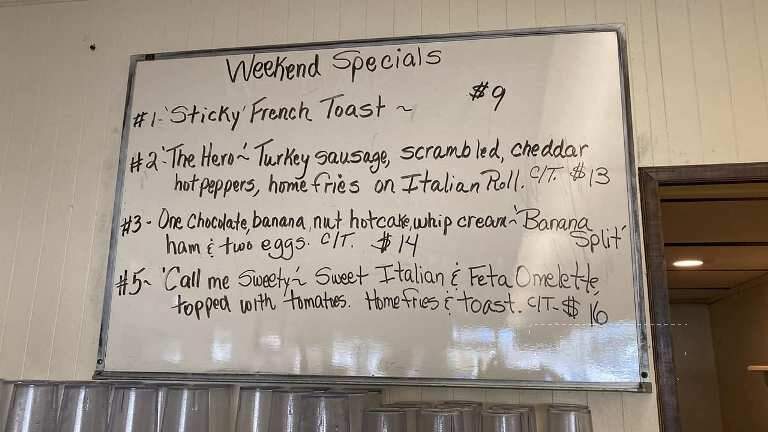 Weekend Specials
#1-'Sticky' French Toast ~ $9
#2-'The Hero~' Turkey sausage, scrambled, cheddar
hot peppers, home fries on Italian Roll. C/T. $13
#3- One chocolate, banana, nut hotcake, whip cream~ 'Banana
ham & two eggs. C/T. $14 Split'
#5~ 'Call me Sweety'~ Sweet Italian & Feta Omelette,
topped with tomatoes. Homefries & toast. C/T- $16